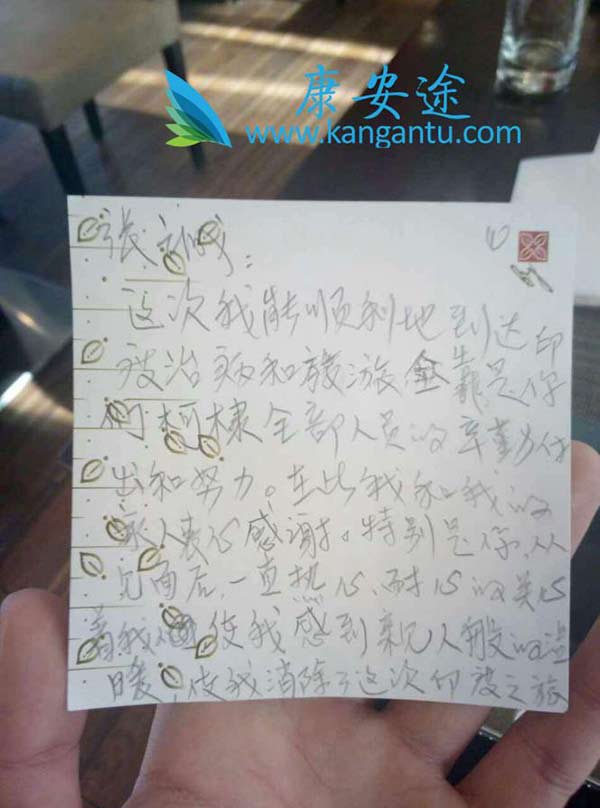 康安途
www.kangantu.com
張
这次我能顺利地到达印
度治病和旅游全靠是你
们柯棣全部人员的辛勤付
出和努力。在此我和我的
家人衷心感谢。特别是你,从
见面后,一直热心,耐心的关心
着我们使我感到亲人般的温
暖,使我消除了这次印度之旅